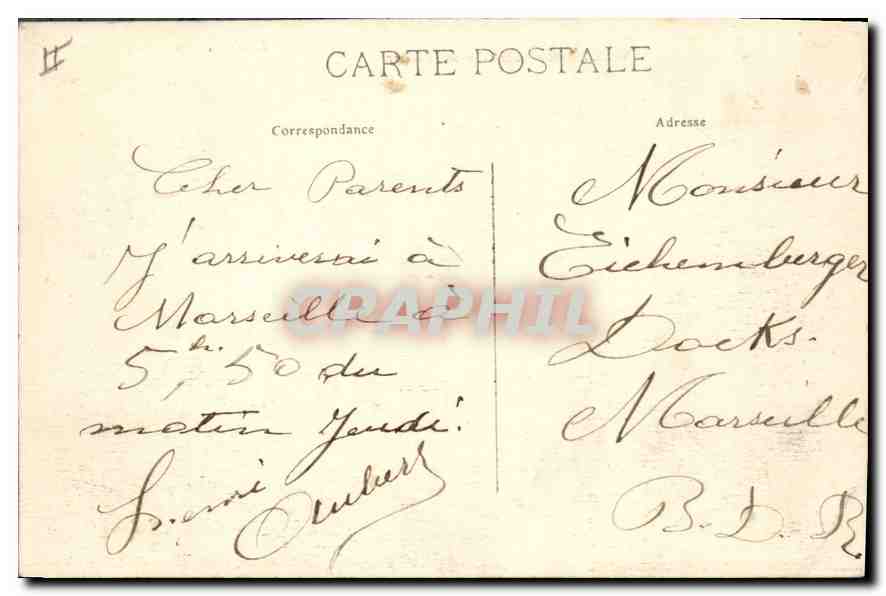 CARTE POSTALE
Correspondance
Cher Parents
J'arriverai à
Marseille à
5h, 50 du
matin Jeudi.
Aubert
Adresse
Monsieur
Eichemberger
Docks.
Marseille
B. D. R.
CPAPHIL